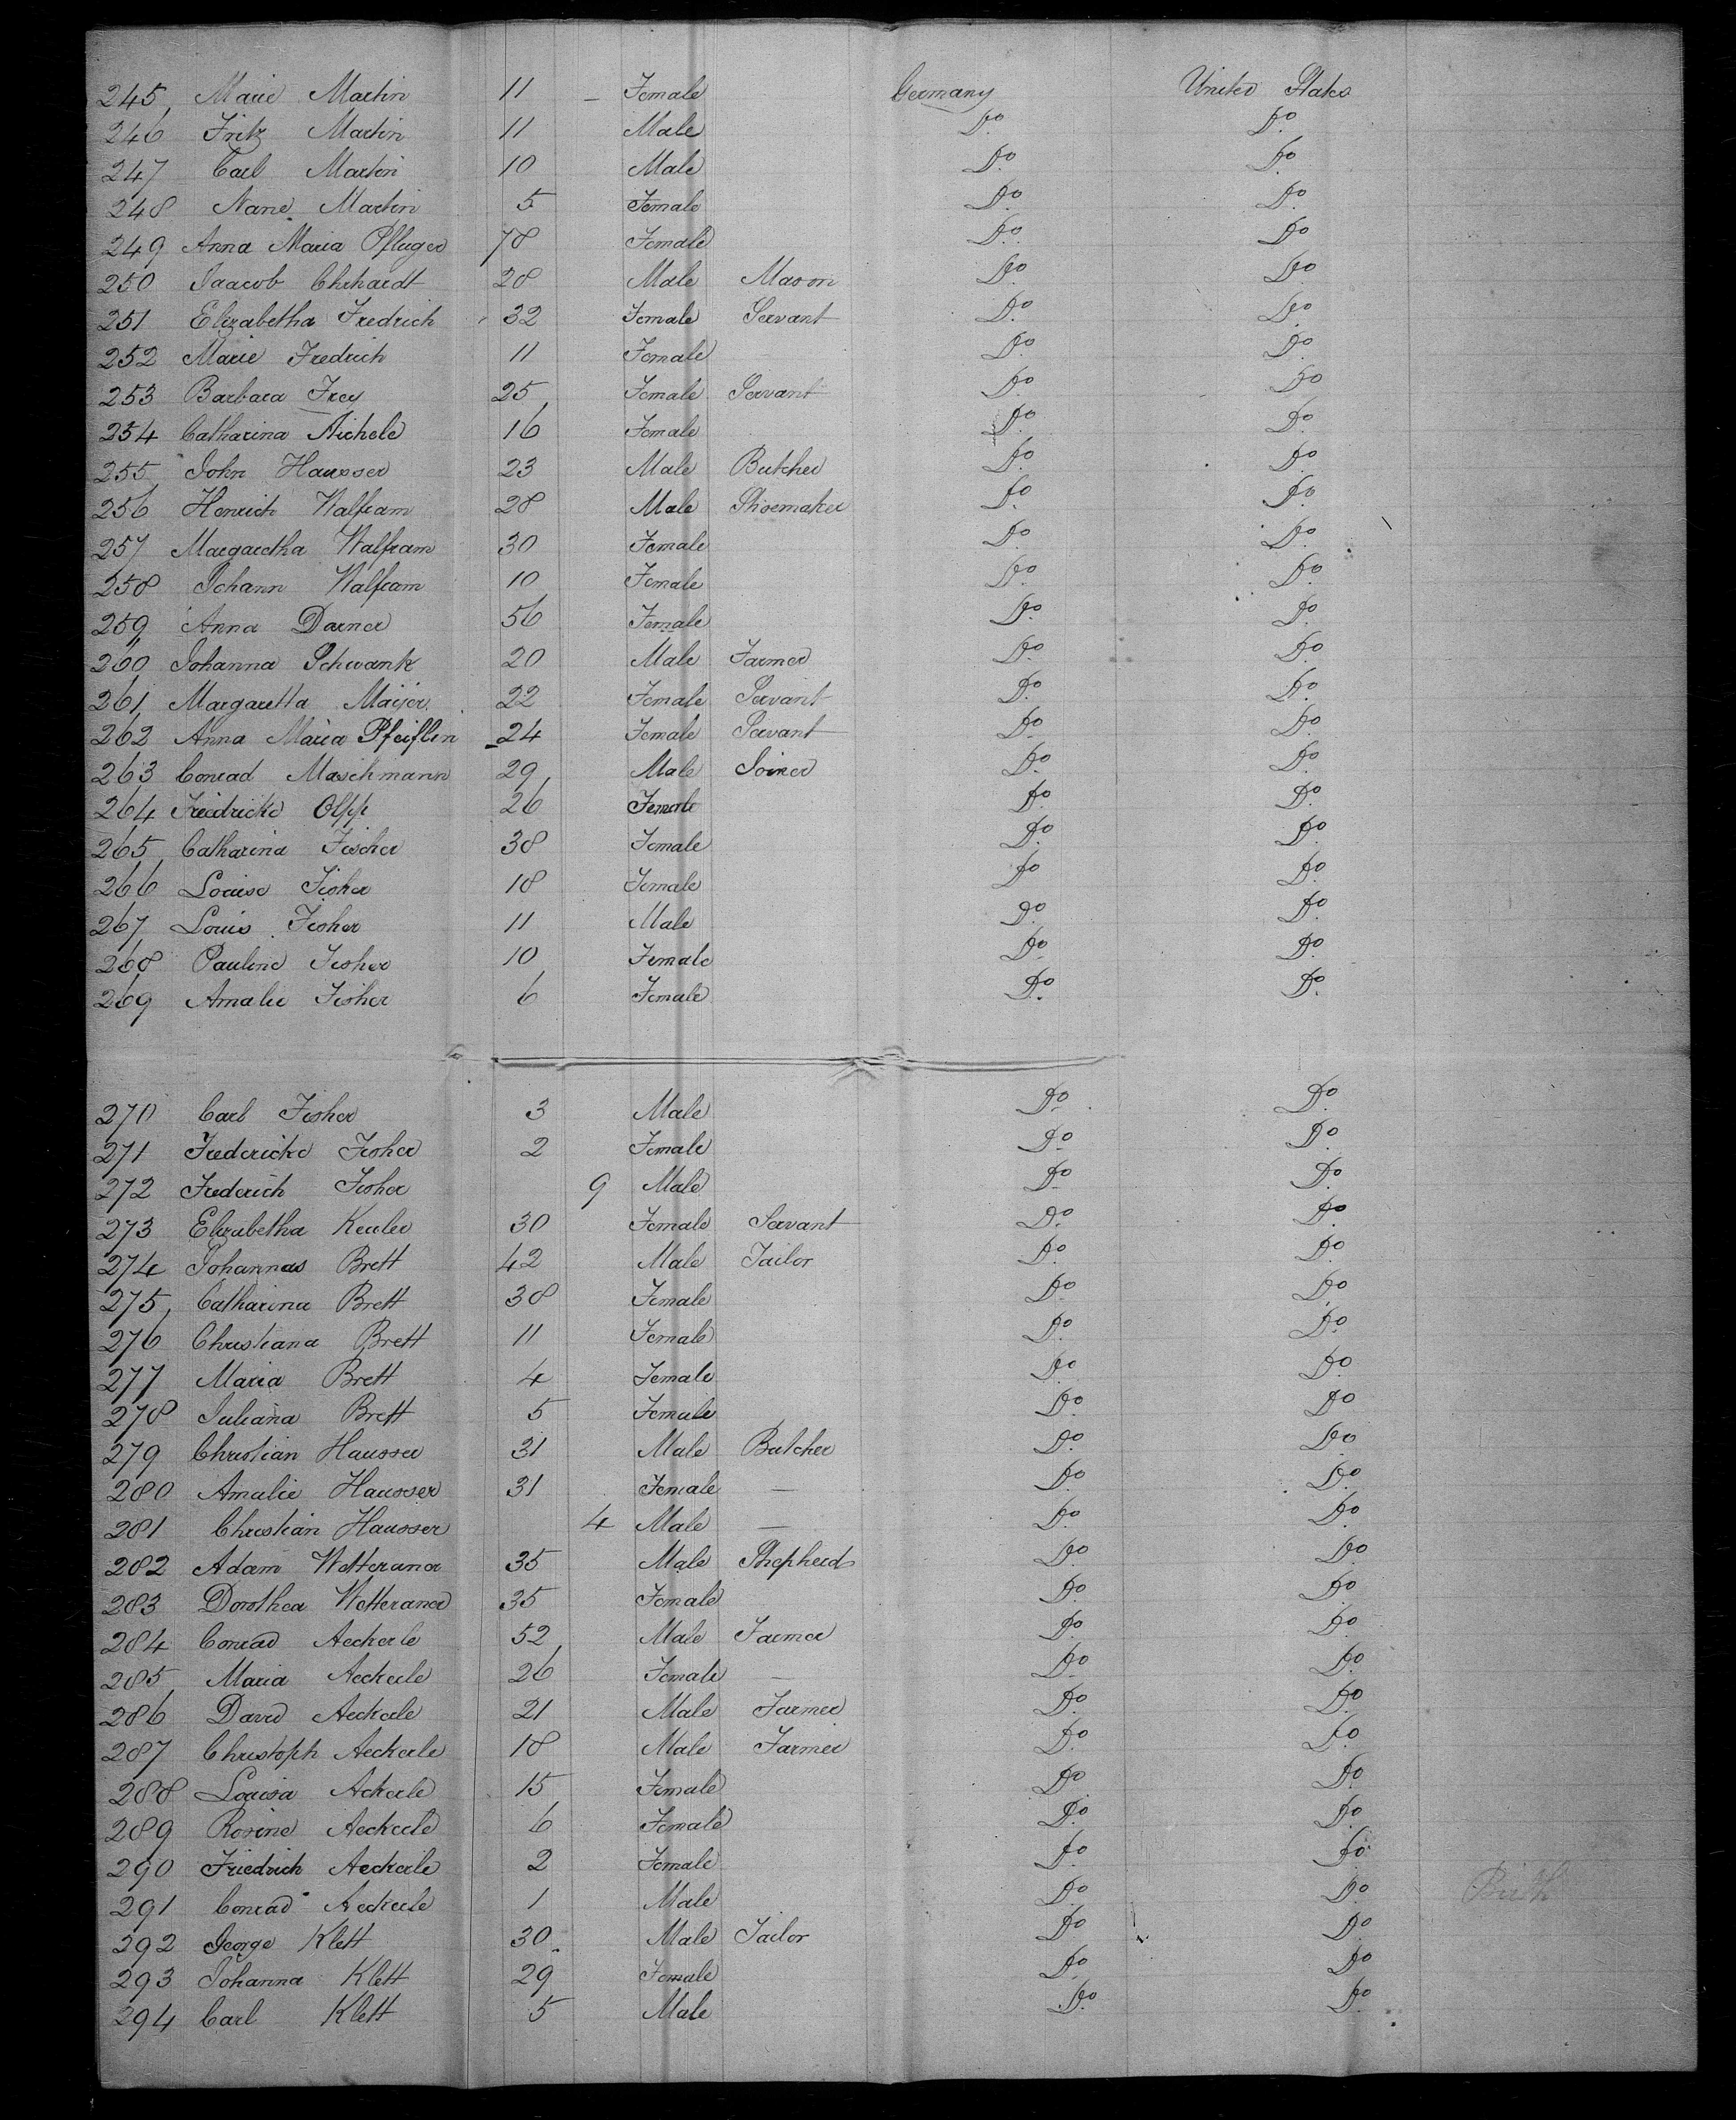 245, Marie Martin 11 – Female Germany United States
246 Fritz Martin 11 Male Do. Do.
247 Carl Martin 10 Male Do. Do.
248 Nane Martin 5 Female Do. Do.
249 Anna Maria Pfluger 78 Female Do. Do
250 Jaacob Ehrhardt 28 Male Mason Do. Do.
251 Elizabetha Fredrich 32 Female Servant Do. Do.
252 Marie Fredrich 11 Female Do. Do.
253 Barbara Frey 25, Female Servant Do. Do
254 Catharina Aichele 16 Female Do. Do.
255, John Hausser 23 Male Butcher Do. Do.
256 Henrich Walfram 28 Male Shoemaker Do. Do.
257 Margaretha Walfram 30 Female Do. Do.
258 Johann Walfram 10 Female Do. Do.
259 Anna Darner 56 Female Do. Do.
260 Johanna Schwank 20 Male Farmer Do. Do.
261 Margaretta Maijer 22 Female Servant Do. Do.
262 Anna Maria Pfeiflin 24 Female Servant Do. Do.
263 Conrad Maschmann 29, Male Joiner Do. Do.
264 Friedricke Olpp 26 Female Do. Do.
265, Catharina Fischer 38 Female Do. Do.
266 Louise Fisher 18 Female Do Do.
267 Louis Fisher 11 Male Do. Do.
268 Pauline Fisher 10 Female Do. Do.
269 Amalie Fisher 6 Female Do. Do.
270 Carl Fisher 3 Male Do. Do.
271 Fredericke Fisher 2 Female Do. Do.
272 Frederich Fisher 9 Male Do. Do.
273 Elizabetha Keuler 30 Female Servant Do. Do.
274 Johannas Brett 42 Male Tailor Do. Do.
275, Catharina Brett 38 Female Do. Do.
276 Christiana Brett 11 Female Do. Do.
277 Maria Brett 4 Female Do. Do.
278 Juliana Brett 5 Female Do. Do
279 Christian Hausser 31 Male Butcher Do. Do
280 Amalie Hausser 31 Female — Do. Do.
281 Christian Hausser 4 Male — Do. Do.
282 Adam Wetteraner 35 Male Shepherd Do. Do.
283 Dorothea Wetteraner 35 Female Do. Do.
284 Conrad Aeckerle 52, Male Farmer Do. Do.
285, Maria Aeckerle 26 Female — Do. Do.
286 David Aeckerle 21 Male Farmer Do. Do.
287 Christoph Aeckerle 18 Male Farmer Do. Do.
288 Louisa Ackerle 15 Female Do. Do.
289 Rosine Aeckerle 6 Female Do. Do.
290 Friedrich Aeckerle 2 Female Do. Do.
291 Conrad Aeckerle 1 Male Do. Do Birth
292 George Klett 30 Male Tailor Do. Do.
293 Johanna Klett 29 Female Do. Do
294 Carl Klett 5 Male Do. Do.